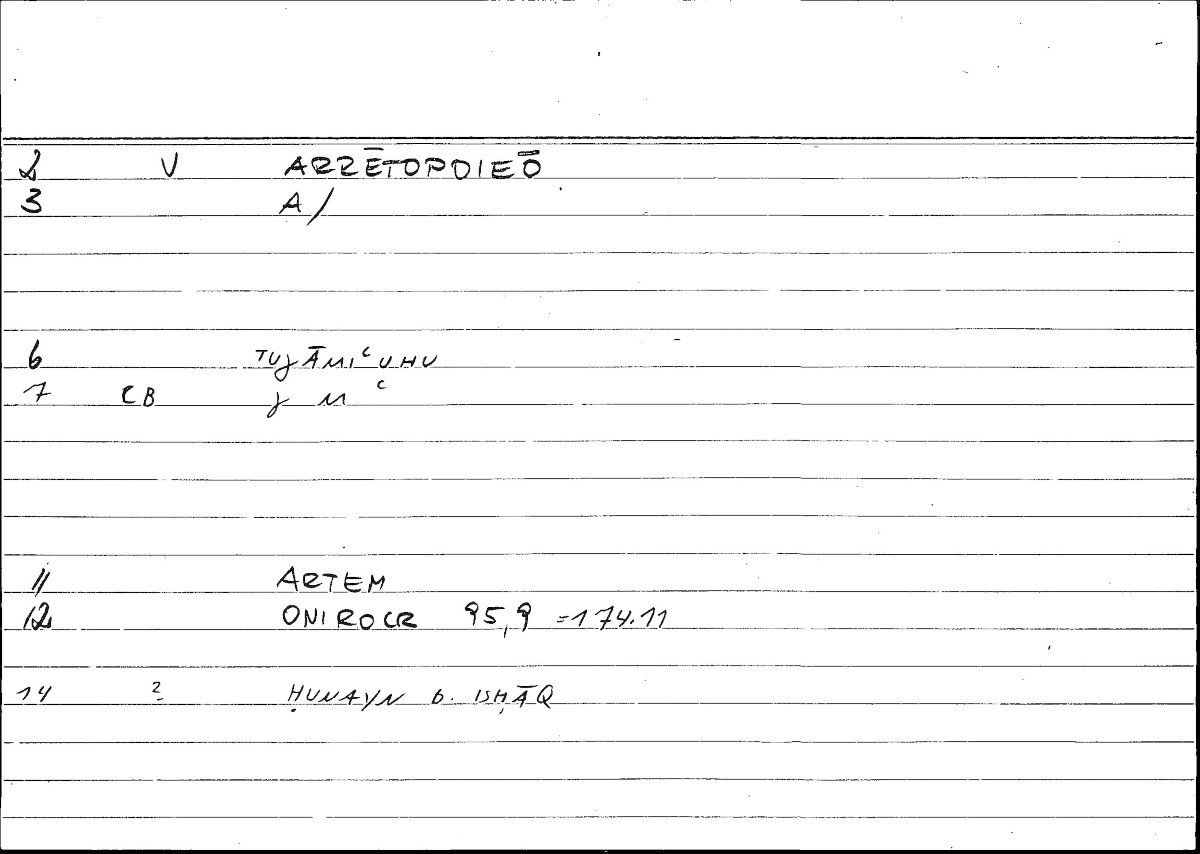 2 V ARRĒTOPOIEŌ
3 A/
6 TUJĀMIʿUHU
7 CB J M ʿ
11 ARTEM
12 ONIROCR 95,9 =174.11
14 2 ḤUNAYN b. ISḤĀQ